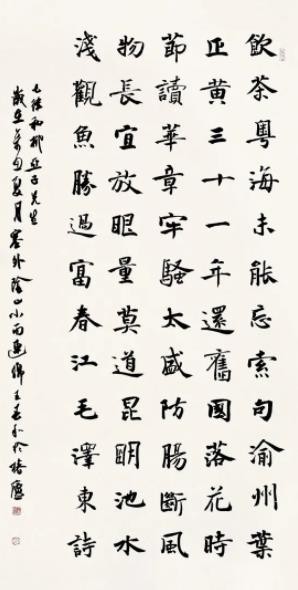 飲茶粵海未能忘索句渝州葉
正黃三十一年還舊國落花時
節讀華章牢騷太盛防腸斷風
物長宜放眼量莫道昆明池水
淺觀魚勝過富春江毛澤東詩
七律和柳亞子先生
歲在夏月塞外陰山小雨連綿王於